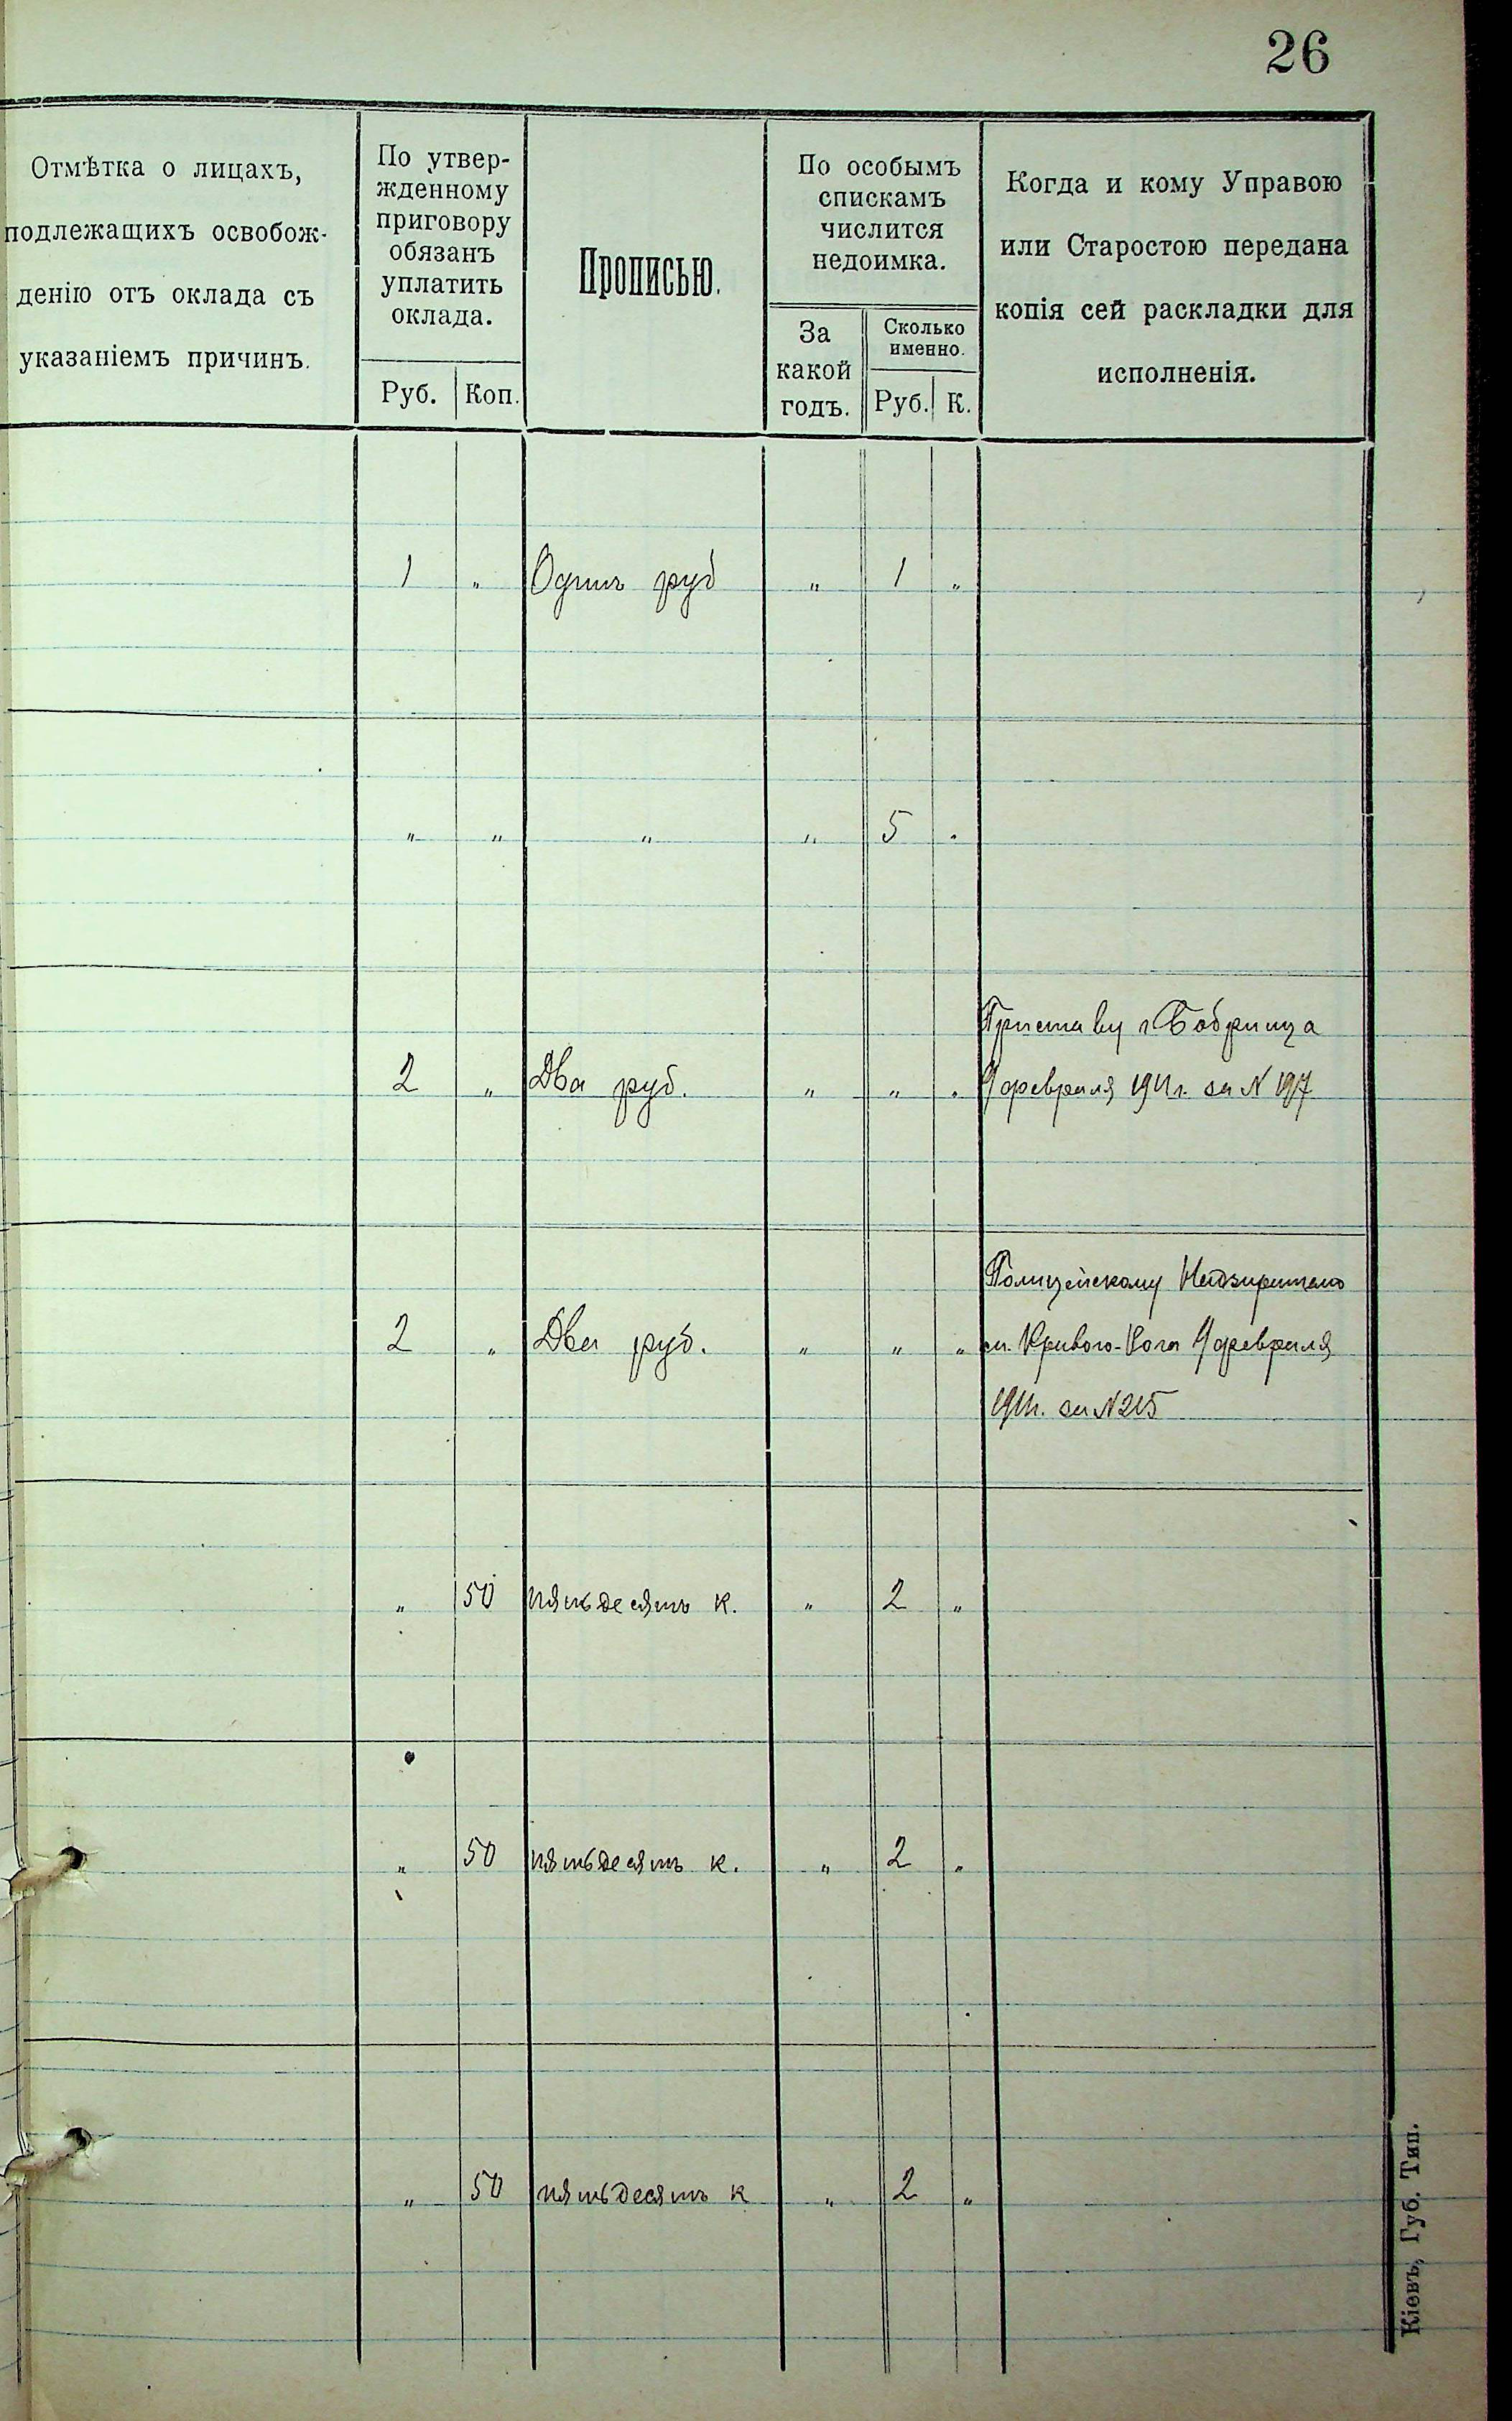 26
Отмѣтка о лицахъ,
подлежащихъ освобож-
денію отъ оклада съ
указаніемъ причинъ.
По утвер-
жденному
приговору
обязанъ
уплатить
оклада.
Руб. Коп.
Прописью.
По особымъ
спискамъ
числится
недоимка.
За
какой
годъ.
Сколько
именно.
Руб. К.
Когда и кому Управою
или Старостою передана
копія сей раскладки для
исполненія.
1 „ Одинъ руб „ 1 „
„ „ „ „ 5 „
Приставу г. Бобринца
2 „ Два руб. „ „ „ 9 февраля 1911 г. за N 197
Полицейскому Надзирателю
2 „ Два руб. „ „ „ м. Кривого-Рога 9 февраля
1911 г. за N 215
„ 50 пятьдесятъ к. „ 2 „
„ 50 пятьдесятъ к. „ 2 „
„ 50 пятьдесятъ к „ 2 „
Кіевъ, Губ. Тип.